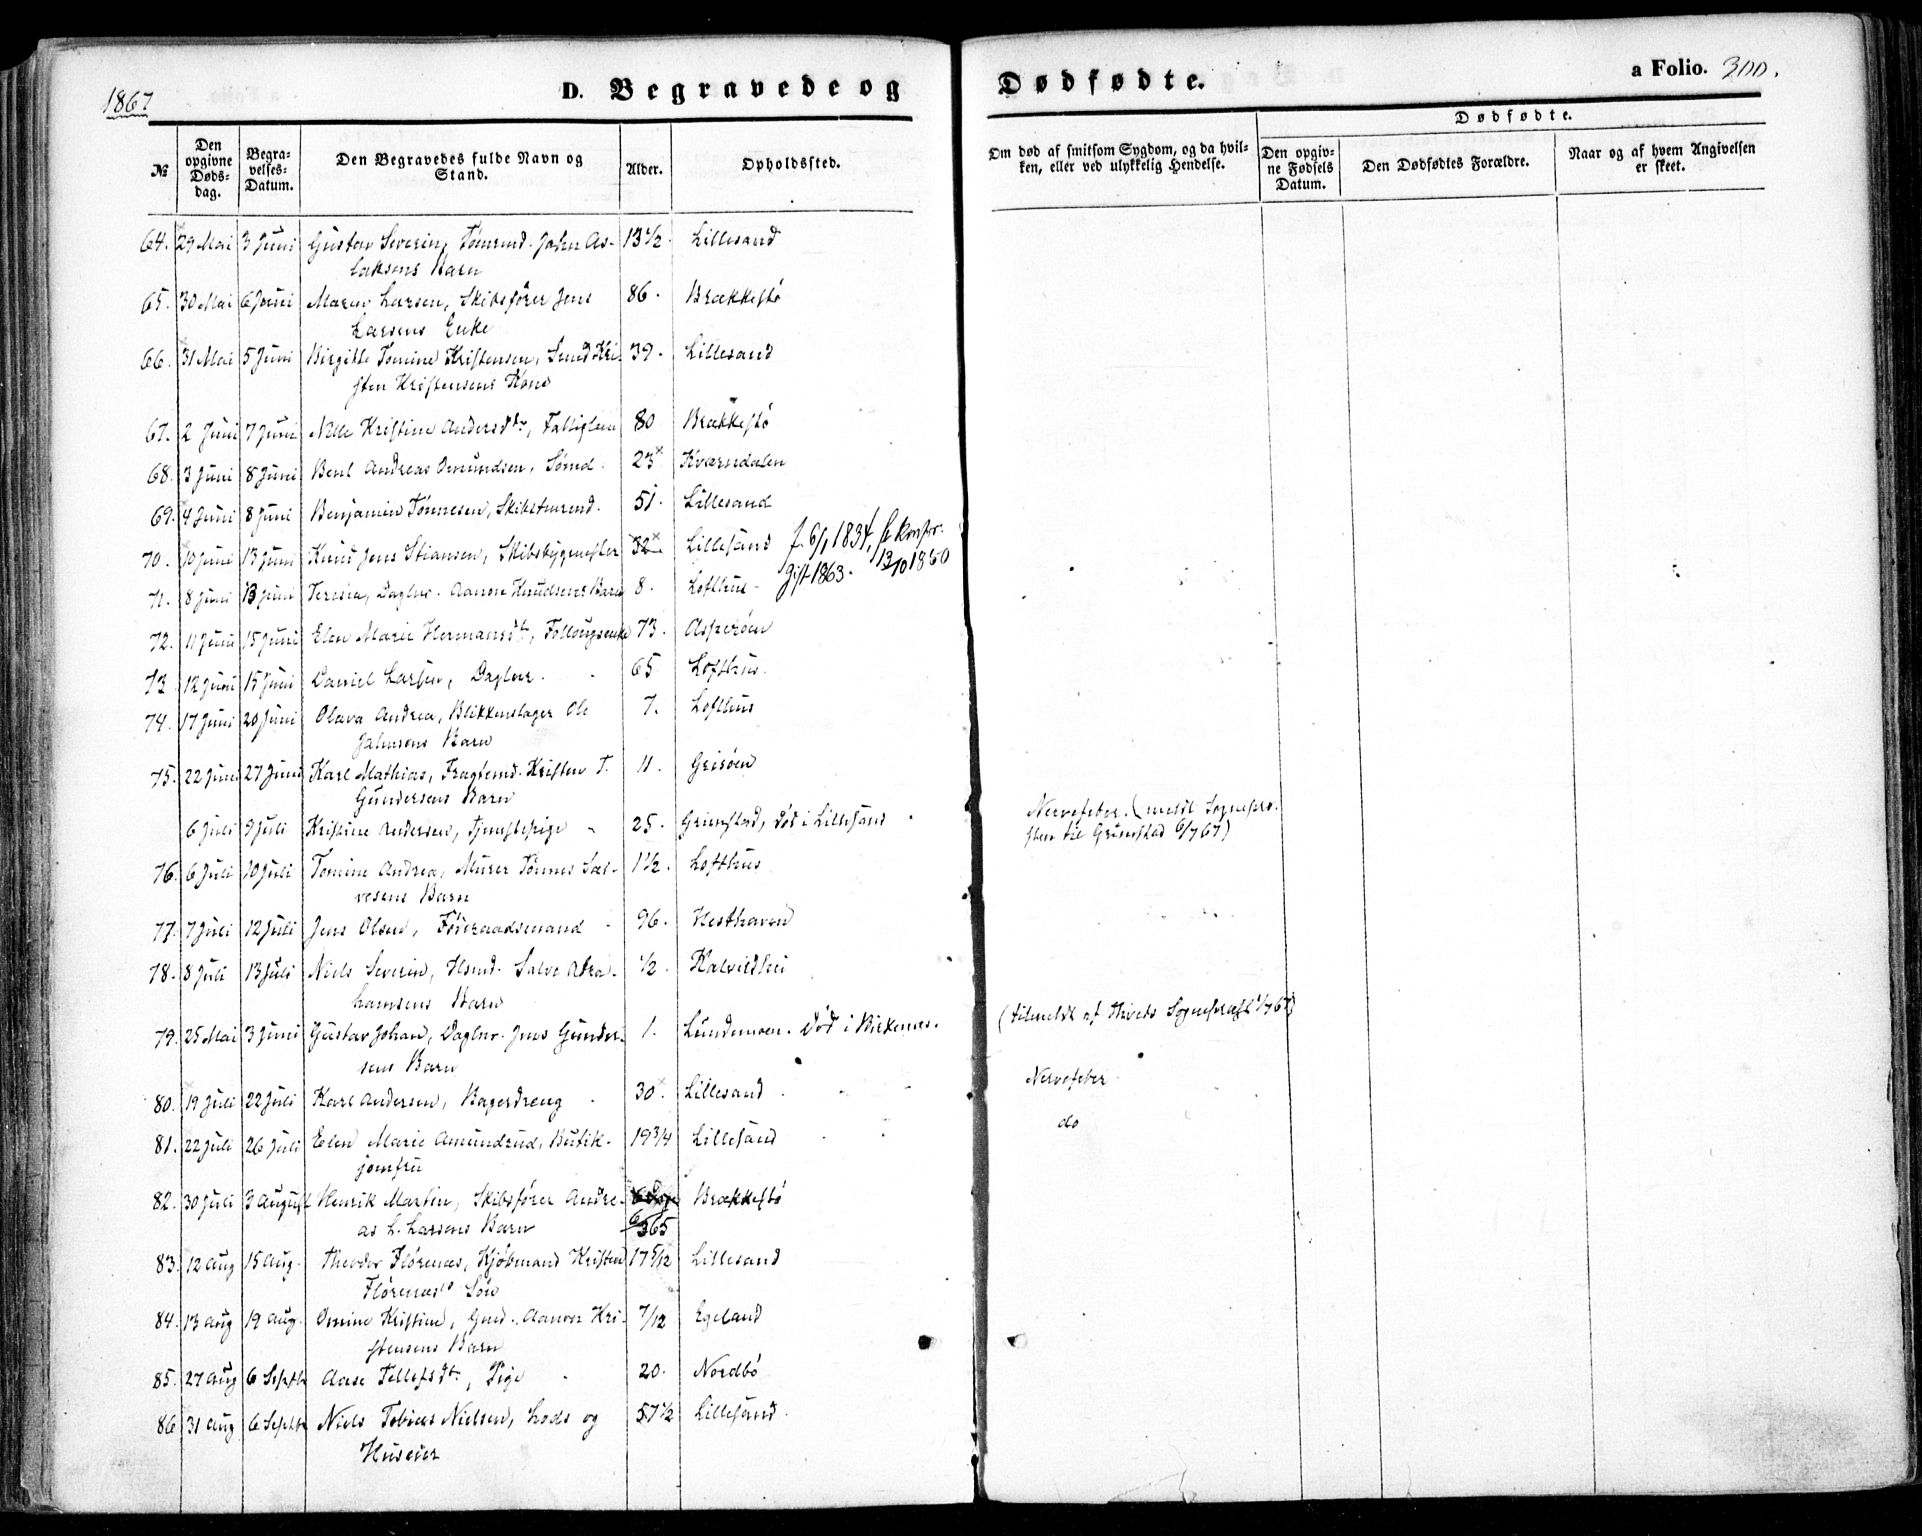 1867
D. Begravede og Dødfødte.
a Folio. 300.
No
Den opgivne Døds-dag.
Begra-velses-Datum.
Den Begravedes fulde Navn og Stand.
Alder.
Opholdssted.
Om død af smitsom Sygdom, og da hvil-ken, eller ved ulykkelig Hendelse.
Dødfødte.
Den opgiv-ne Fødsels Datum.
Den Dødfødtes Forældre.
Naar og af hvem Angivelsen er skeet.
64. 29 Mai 3 Juni Gustav Severin, Tømrmd. John As- 13 1/2 Lillesand
laksens Barn
65. 30 Mai 6 Juni Maren Larsen, Skibsfører Jens 86. Brækkestø
Larsens Enke
66. 31 Mai 5 Juni Birgitte Tomine Kristensen, Smed Kri- 39. Lillesand
sten Kristensens Kone
67. 2 Juni 7 Juni Kristine Andersdtr, Fattiglem 80 Brækkestø
68. 3 Juni 8 Juni Bent Andreas Omundsen, Sømd. 23 Kværndalen
69. 4 Juni 8 Juni Benjamin Tønnesen, Skibstmrmd. 51. Lillesand
70. 10 Juni 13 Juni Knud Jens Stiansen, Skibsbygmester 32 Lillesand f. 6/1 1834, konfir.
13/10 1850
gift 1863.
71. 8 Juni 13 Juni Teresia, Daglnr. Aanon Knudsens Barn 8. Lofthus
72. 11 Juni 15 Juni Elen Marie Hermansdtr, 73. Asperøen
73. 12 Juni 15 Juni Daniel Larsen, Daglnr. 65 Lofthus.
74. 17 Juni 20 Juni Olava Andrea, Blikkenslager Ole 7. Lofthus
Jahnsens Barn
75. 22 Juni 27 Juni Karl Mathias, Fragtemd. Kristen T. 11. Grisøen
Gundersens Barn
6 Juli 9 Juli Kristine Andersen, Tjenestepige 25. Grimstad, død i Lillesand Nervefeber. (meldt Sognepræ-
sten til Grimstad 6/7 67)
76. 6 Juli 10 Juli Tomine Andrea, Murer Tønnes Sal- 1 1/2. Lofthus
vesens Barn
77. 7 Juli 12 Juli Jens Olsen, Føderaadsmand 96. Hesthaven
78. 8 Juli 13 Juli Niels Severin, Hsmd. Salve Abra- 1/2. Kalvildhei
hamsens Barn
79. 25 Mai 3 Juni Gustav Johan, Daglnr. Jens Gunder- 1. Lundemoen. Død i Birkenes. (tilmeldt af Sognepræst 1/7 67)
sens Barn
80. 19 Juli 22 Juli Karl Andersen, Bagerdreng 30. Lillesand Nervefeber
81. 22 Juli 26 Juli Elen Marie Amundrud, Butik- 19 3/4 Lillesand do
jomfru
82. 30 Juli 3 August Henrik Martin, Skibsfører Andre- 6/365 Brækkestø
as L. Larsens Barn
83. 12 Aug 15 Aug. Theodor Flørenæs, Kjøbmand Kristen 17 5/12 Lillesand
Flørenæs's Søn
84. 13 Aug 19 Aug. Omine Kristine, Gmd. Aanon Kri- 7/12 Egeland
stensens Barn
85. 27 Aug 6 Septb Aase Tellefsdtr, Pige 20. Nordbø
86 31 Aug 6 Septb Niels Tobias Nielsen, Lods og 57 1/2 Lillesand.
Huseier